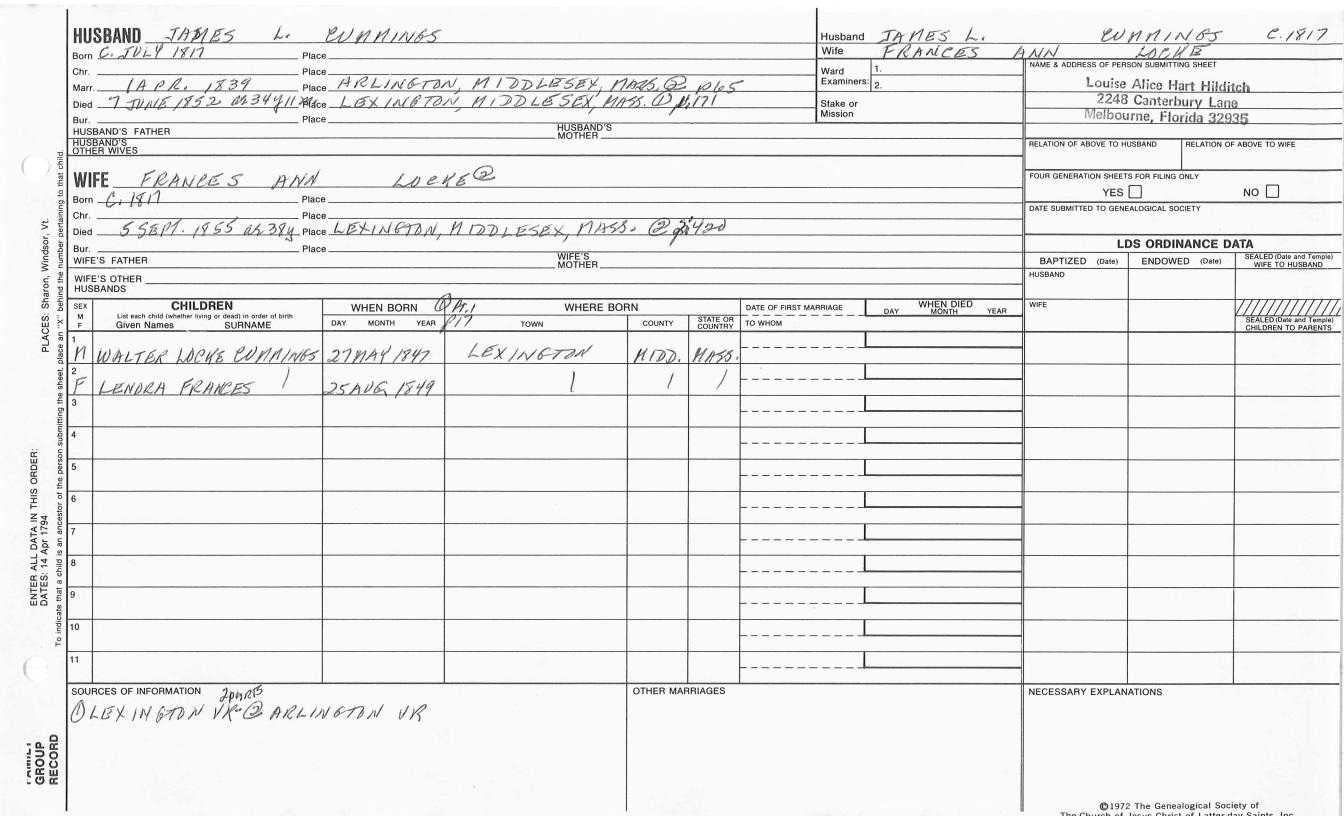 HUSBAND JAMES L. CUMMINGS
Born C. JULY 1817 Place
Chr. Place
Marr. 1 APR. 1839 Place ARLINGTON, MIDDLESEX, MASS. ② p65
Died 7 JUNE 1852 Place LEXINGTON, MIDDLESEX, MASS. ① p.171
Bur. Place
HUSBAND'S FATHER HUSBAND'S MOTHER
HUSBAND'S OTHER WIVES
Husband JAMES L. CUMMINGS C.1817
Wife FRANCES ANN LOCKE
Ward Examiners: 1.
2.
Stake or Mission
NAME & ADDRESS OF PERSON SUBMITTING SHEET
Louise Alice Hart Hilditch
2248 Canterbury Lane
Melbourne, Florida 32935
RELATION OF ABOVE TO HUSBAND RELATION OF ABOVE TO WIFE
FOUR GENERATION SHEETS FOR FILING ONLY
YES NO
DATE SUBMITTED TO GENEALOGICAL SOCIETY
WIFE FRANCES ANN LOCKE ②
Born C. 1817 Place
Chr. Place
Died 5 SEPT. 1855 Place LEXINGTON, MIDDLESEX, MASS.
Bur. Place
WIFE'S FATHER WIFE'S MOTHER
WIFE'S OTHER HUSBANDS
LDS ORDINANCE DATA
BAPTIZED (Date) ENDOWED (Date) SEALED (Date and Temple) WIFE TO HUSBAND
HUSBAND
WIFE
SEALED (Date and Temple) CHILDREN TO PARENTS
SEX M F
CHILDREN
List each child (whether living or dead) in order of birth
Given Names SURNAME
WHEN BORN ① Pt.1 p17
DAY MONTH YEAR
WHERE BORN
TOWN COUNTY STATE OR COUNTRY
DATE OF FIRST MARRIAGE
TO WHOM
WHEN DIED
DAY MONTH YEAR
1 M WALTER LOCKE CUMMINGS 27 MAY 1847 LEXINGTON MIDD. MASS.
2 F LENDRA FRANCES 25 AUG 1849
3
4
5
6
7
8
9
10
11
SOURCES OF INFORMATION
① LEXINGTON VR ② ARLINGTON VR
OTHER MARRIAGES
NECESSARY EXPLANATIONS
©1972 The Genealogical Society of
The Church of Jesus Christ of Latter-day Saints, Inc.
ENTER ALL DATA IN THIS ORDER:
DATES: 14 Apr 1794 PLACES: Sharon, Windsor, Vt.
To indicate that a child is an ancestor of the person submitting the sheet, place an "X" behind the number pertaining to that child.
FAMILY
GROUP
RECORD